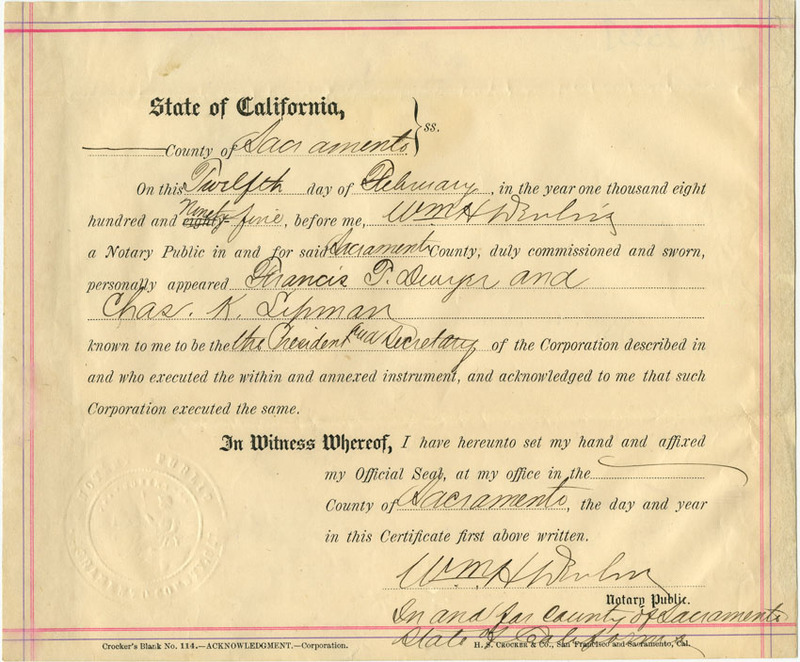 State of California,
County of Sacramento } ss.
On this Twelfth day of February, in the year one thousand eight
hundred and eighty Ninety-five, before me, Wm H Devlin
a Notary Public in and for said Sacramento County, duly commissioned and sworn,
personally appeared Francis T. Dwyer and
Chas. K. Lipman
known to me to be the the President and Secretary of the Corporation described in
and who executed the within and annexed instrument, and acknowledged to me that such
Corporation executed the same.
In Witness Whereof, I have hereunto set my hand and affixed
my Official Seal, at my office in the
County of Sacramento, the day and year
in this Certificate first above written.
Wm H Devlin
Notary Public.
In and for County of Sacramento
State of California
Crocker's Blank No. 114.—ACKNOWLEDGMENT.—Corporation.
H. S. CROCKER & CO., San Francisco and Sacramento, Cal.
NOTARY PUBLIC